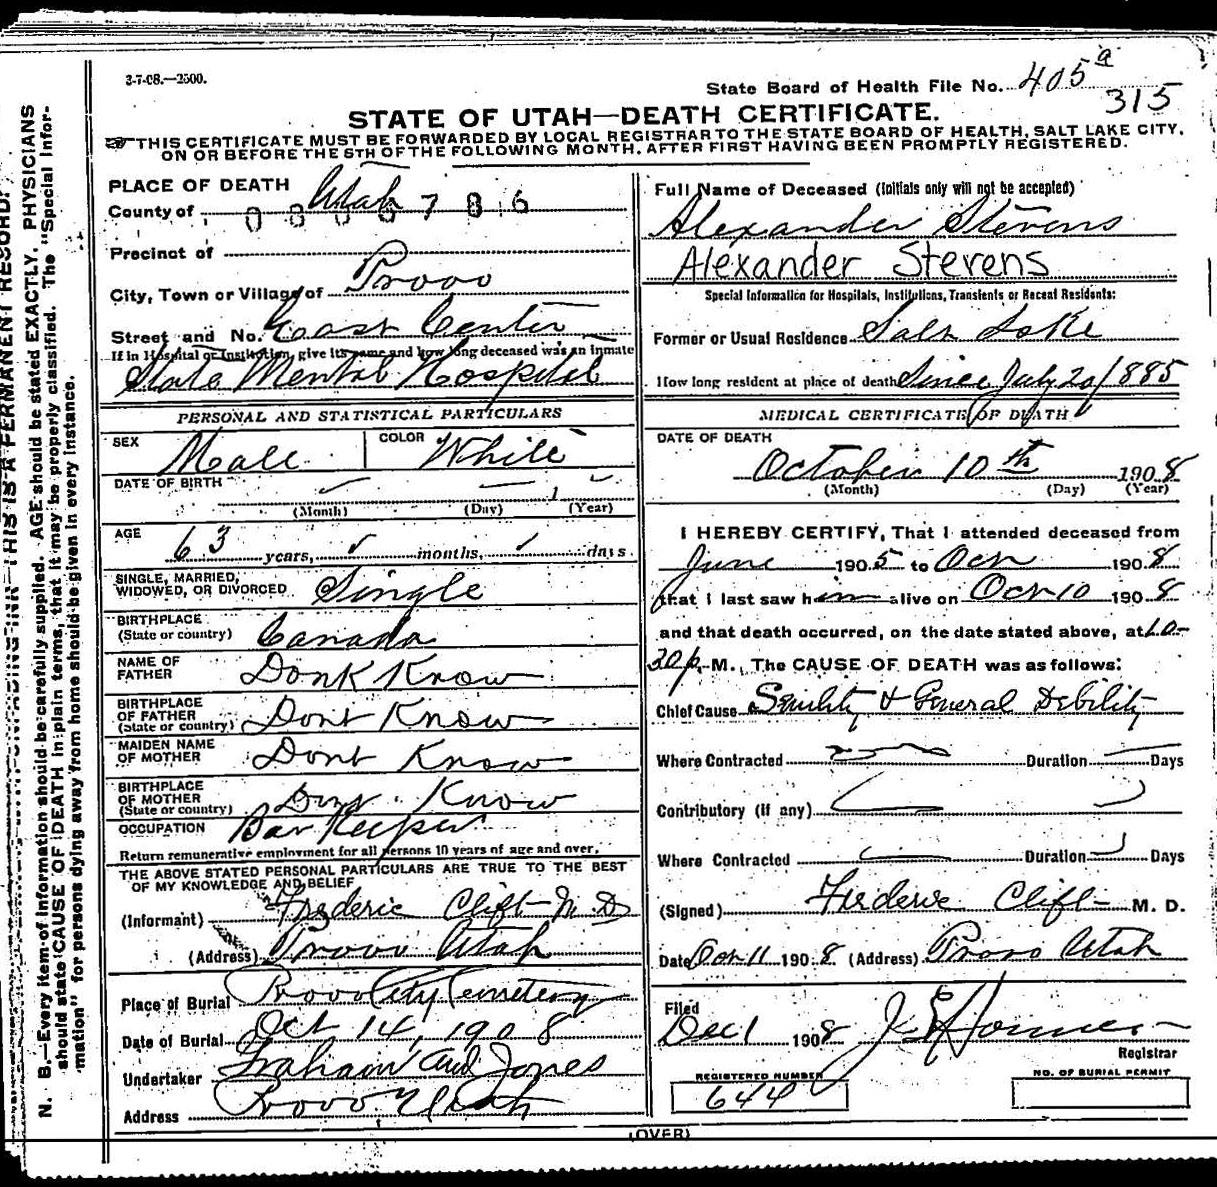 3-7-08.—2500.
State Board of Health File No. 405 a
315
STATE OF UTAH—DEATH CERTIFICATE.
THIS CERTIFICATE MUST BE FORWARDED BY LOCAL REGISTRAR TO THE STATE BOARD OF HEALTH, SALT LAKE CITY,
ON OR BEFORE THE 5TH OF THE FOLLOWING MONTH, AFTER FIRST HAVING BEEN PROMPTLY REGISTERED.
PLACE OF DEATH
County of Utah
Precinct of
City, Town or Village of Provo
Street and No. East Center
If in Hospital or Institution, give its name and how long deceased was an inmate
State Mental Hospital
PERSONAL AND STATISTICAL PARTICULARS
SEX Male COLOR White
DATE OF BIRTH 1
(Month) (Day) (Year)
AGE 63 years, months, days
SINGLE, MARRIED,
WIDOWED, OR DIVORCED Single
BIRTHPLACE
(State or country) Canada
NAME OF
FATHER Dont Know
BIRTHPLACE
OF FATHER
(State or country) Dont Know
MAIDEN NAME
OF MOTHER Dont Know
BIRTHPLACE
OF MOTHER
(State or country) Dont Know
OCCUPATION Bar Keeper
Return remunerative employment for all persons 10 years of age and over.
THE ABOVE STATED PERSONAL PARTICULARS ARE TRUE TO THE BEST
OF MY KNOWLEDGE AND BELIEF
(Informant) Frederic Clift M D
(Address) Provo Utah
Place of Burial Provo City Cemetery
Date of Burial Oct 14, 1908
Undertaker Graham and Jones
Address Provo Utah
Full Name of Deceased (Initials only will not be accepted)
Alexander Stevens
Alexander Stevens
Special Information for Hospitals, Institutions, Transients or Recent Residents:
Former or Usual Residence Salt Lake
How long resident at place of death Since July 20/1885
MEDICAL CERTIFICATE OF DEATH
DATE OF DEATH
October 10th 1908
(Month) (Day) (Year)
I HEREBY CERTIFY, That I attended deceased from
June 1905 to Oct 1908
that I last saw him alive on Oct 10 1908
and that death occurred, on the date stated above, at 10-
30 p. M. The CAUSE OF DEATH was as follows:
Chief Cause Senility & General Debility
Where Contracted Duration Days
Contributory (if any)
Where Contracted Duration Days
(Signed) Frederic Clift M. D.
Date Oct 11 1908 (Address) Provo Utah
Filed
Dec 1 1908
Registrar
REGISTERED NUMBER
644
NO. OF BURIAL PERMIT
(OVER)
N. B.—Every item of information should be carefully supplied. AGE should be stated EXACTLY. PHYSICIANS
should state CAUSE OF DEATH in plain terms, that it may be properly classified. The "Special Infor-
mation" for persons dying away from home should be given in every instance.